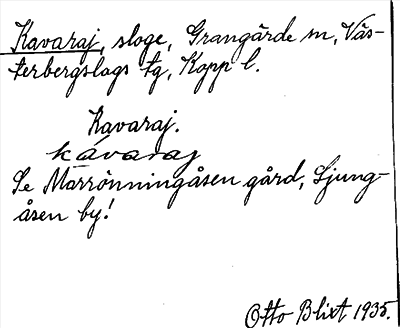 Kavaraj, sloge, Grangärde sn, Väs-
terbergslags tg, Kopp l.
Kavaraj.
kávaraj
Se Marrönningåsen gård, Ljung-
åsen by!
Otto Blixt 1935.